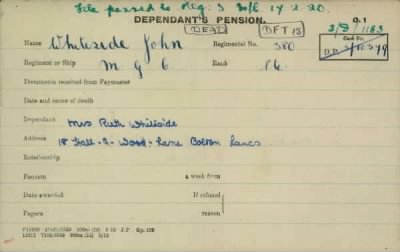 File passed to Reg. 3 17.2.20.
DEPENDANT'S PENSION.
G.1
DEAD
DFT 15
3/D/1183
Name Whiteside John Regimental No. 380
Card No.
Regiment or Ship M G C Rank Pte.
Documents received from Paymaster
Date and name of death
Dependant Mrs Ruth Whiteside
Address 18 Hall-th-Wood-Lane Bolton Lancs
Relationship
Pension a week from
Date awarded If refused
Papers reason